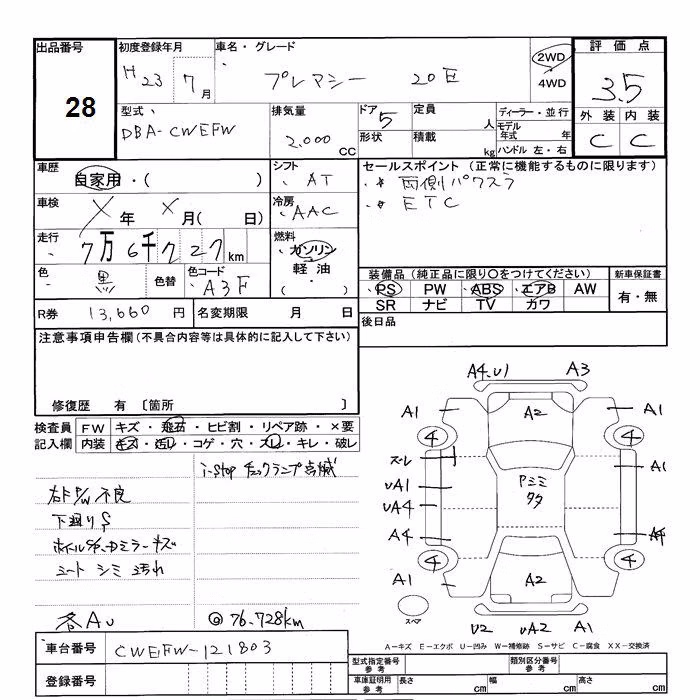 出品番号 初度登録年月 車名・グレード 評価点
28 H23 7月 プレマシー 20E 2WD 4WD 3.5
型式 排気量 ドア 5 定員 人 ディーラー・並行 外装 内装
DBA-CWEFW 2,000 CC 形状 積載 kg モデル年式 年 C C
ハンドル 左・右
車歴 自家用・( ) シフト AT セールスポイント (正常に機能するものに限ります)
車検 X年 X月( 日) 冷房 AAC * 両側パワスラ
* ETC
走行 7万6千727km 燃料 ガソリン 軽油 ( ・ )
色 黒 色替 色コード A3F 装備品 (純正品に限り○をつけてください) 新車保証書
PS PW ABS エアB AW 有・無
SR ナビ TV カワ
R券 13,660円 名変期限 月 日 後日品
注意事項申告欄 (不具合内容等は具体的に記入して下さい)
修復歴 有 〔箇所 〕
検査員 記入欄 FW キズ・飛石・ヒビ割・リペア跡・×要
内装 キズ・汚レ・コゲ・穴・スレ・キレ・破レ
i-stop チェックランプ点滅
右F P/W 不良
下廻りS
シート シミ 汚れ
各AU @76,728km
A4.U1 A3
A1 A2 A1
4 4
スレ A1
UA1 アミミ
UA4 タタ
A4
4 4
A1 A2 A1
スペア U2 UA2 A1
A-キズ E-エクボ U-凹み W-補修跡 S-サビ C-腐食 XX-交換済
車台番号 CWEFW-121803
登録番号
型式指定番号 参考 類別区分番号 参考
車庫証明用 参考 長さ cm 幅 cm 高さ cm